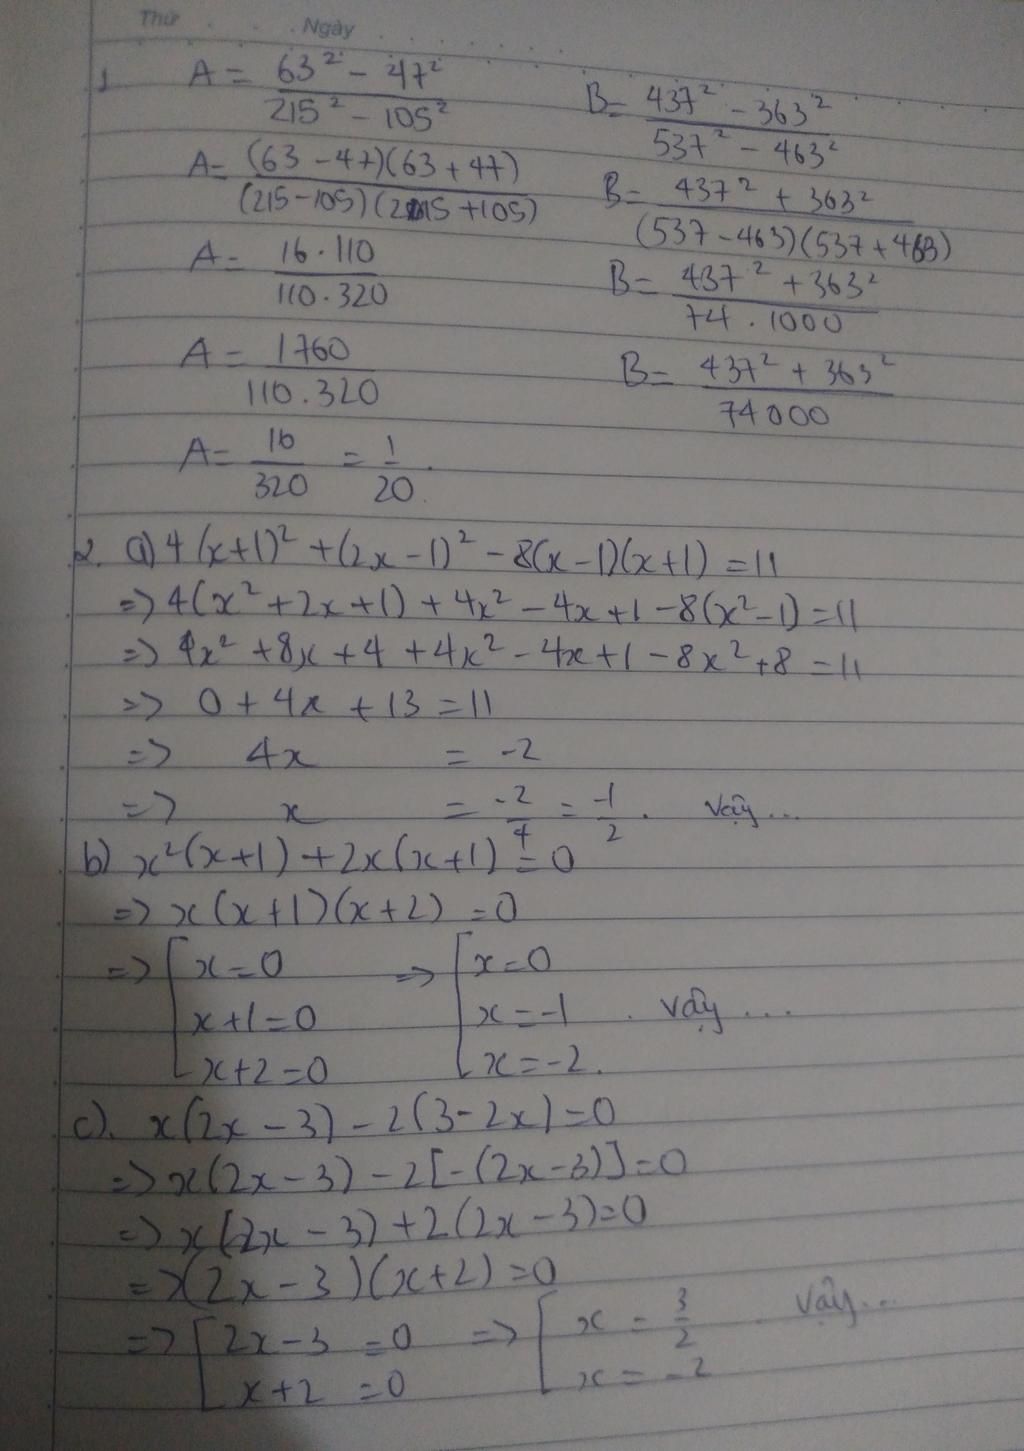 Thứ . . Ngày
1 A = (63² - 47²)/(215² - 105²)
A = ((63 - 47)(63 + 47))/((215 - 105)(215 + 105))
A = (16 . 110)/(110 . 320)
A = 1760/(110 . 320)
A = 16/320 = 1/20.
B = (437² - 363²)/(537² - 463²)
B = (437² + 363²)/((537 - 463)(537 + 463))
B = (437² + 363²)/(74 . 1000)
B = (437² + 363²)/74000
2. a) 4(x+1)² + (2x-1)² - 8(x-1)(x+1) = 11
=> 4(x² + 2x + 1) + 4x² - 4x + 1 - 8(x² - 1) = 11
=> 4x² + 8x + 4 + 4x² - 4x + 1 - 8x² + 8 = 11
=> 0 + 4x + 13 = 11
=> 4x = -2
=> x = -2/4 = -1/2 . Vậy...
b) x²(x+1) + 2x(x+1) = 0
=> x(x+1)(x+2) = 0
=> [ x = 0 => [ x = 0
x+1 = 0 x = -1 . Vậy ...
x+2 = 0 x = -2.
c). x(2x - 3) - 2(3 - 2x) = 0
=> x(2x - 3) - 2[-(2x - 3)] = 0
=> x(2x - 3) + 2(2x - 3) = 0
=> (2x - 3)(x + 2) = 0
=> [ 2x - 3 = 0 => [ x = 3/2 . Vậy...
x + 2 = 0 x = -2